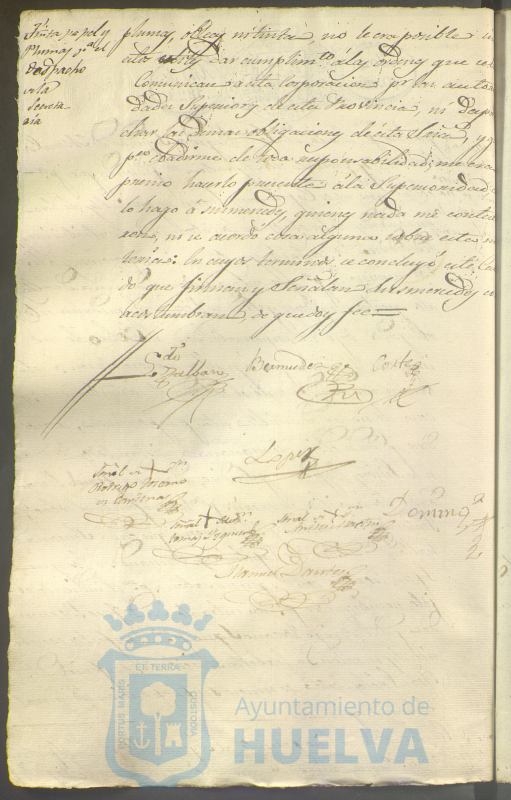 Tinta papel y
Plumas p.ª el
Despacho
de la
Secreta
ría
plumas, obleas ni tinta, no le era posible
dar cumplim.to á las ordenes que se
Comunican a esta Corporacion por las autori
dades Superiores de esta Provincia, ni despa
char las demas obligaciones de esta Sria, y
p.a cubrirme de toda responsabilidad me era
preciso hacerlo presente á la Superioridad,
lo hago á sus mercedes, quienes nada me contes
ron, ni se acordó cosa alguna sobre esta ma
teria: En cuyos terminos se concluyó este
do que firman y Señalan sus mercedes
acostumbran, de que doy fee=
Bermudez
Cortes
Lopez
Señal de
Doming
Señal
Señal de
Manuel
PORTUS MARIS
ET TERRÆ
CUSTODIA
Ayuntamiento de
HUELVA